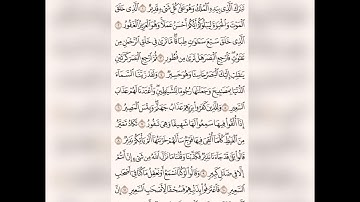 تَبَٰرَكَ ٱلَّذِي بِيَدِهِ ٱلْمُلْكُ وَهُوَ عَلَىٰ كُلِّ شَيْءٍ قَدِيرٌ ١ ٱلَّذِي خَلَقَ
ٱلْمَوْتَ وَٱلْحَيَوٰةَ لِيَبْلُوَكُمْ أَيُّكُمْ أَحْسَنُ عَمَلًا وَهُوَ ٱلْعَزِيزُ ٱلْغَفُورُ ٢
ٱلَّذِي خَلَقَ سَبْعَ سَمَٰوَٰتٍ طِبَاقًا مَّا تَرَىٰ فِي خَلْقِ ٱلرَّحْمَٰنِ مِن
تَفَٰوُتٍ فَٱرْجِعِ ٱلْبَصَرَ هَلْ تَرَىٰ مِن فُطُورٍ ٣ ثُمَّ ٱرْجِعِ ٱلْبَصَرَ كَرَّتَيْنِ
يَنقَلِبْ إِلَيْكَ ٱلْبَصَرُ خَاسِئًا وَهُوَ حَسِيرٌ ٤ وَلَقَدْ زَيَّنَّا ٱلسَّمَآءَ
ٱلدُّنْيَا بِمَصَٰبِيحَ وَجَعَلْنَٰهَا رُجُومًا لِّلشَّيَٰطِينِ وَأَعْتَدْنَا لَهُمْ عَذَابَ
ٱلسَّعِيرِ ٥ وَلِلَّذِينَ كَفَرُوا۟ بِرَبِّهِمْ عَذَابُ جَهَنَّمَ وَبِئْسَ ٱلْمَصِيرُ ٦
إِذَآ أُلْقُوا۟ فِيهَا سَمِعُوا۟ لَهَا شَهِيقًا وَهِيَ تَفُورُ ٧ تَكَادُ تَمَيَّزُ
مِنَ ٱلْغَيْظِ كُلَّمَآ أُلْقِيَ فِيهَا فَوْجٌ سَأَلَهُمْ خَزَنَتُهَآ أَلَمْ يَأْتِكُمْ نَذِيرٌ ٨
قَالُوا۟ بَلَىٰ قَدْ جَآءَنَا نَذِيرٌ فَكَذَّبْنَا وَقُلْنَا مَا نَزَّلَ ٱللَّهُ مِن شَيْءٍ إِنْ أَنتُمْ
إِلَّا فِي ضَلَٰلٍ كَبِيرٍ ٩ وَقَالُوا۟ لَوْ كُنَّا نَسْمَعُ أَوْ نَعْقِلُ مَا كُنَّا فِيٓ أَصْحَٰبِ
ٱلسَّعِيرِ ١٠ فَٱعْتَرَفُوا۟ بِذَنۢبِهِمْ فَسُحْقًا لِّأَصْحَٰبِ ٱلسَّعِيرِ ١١